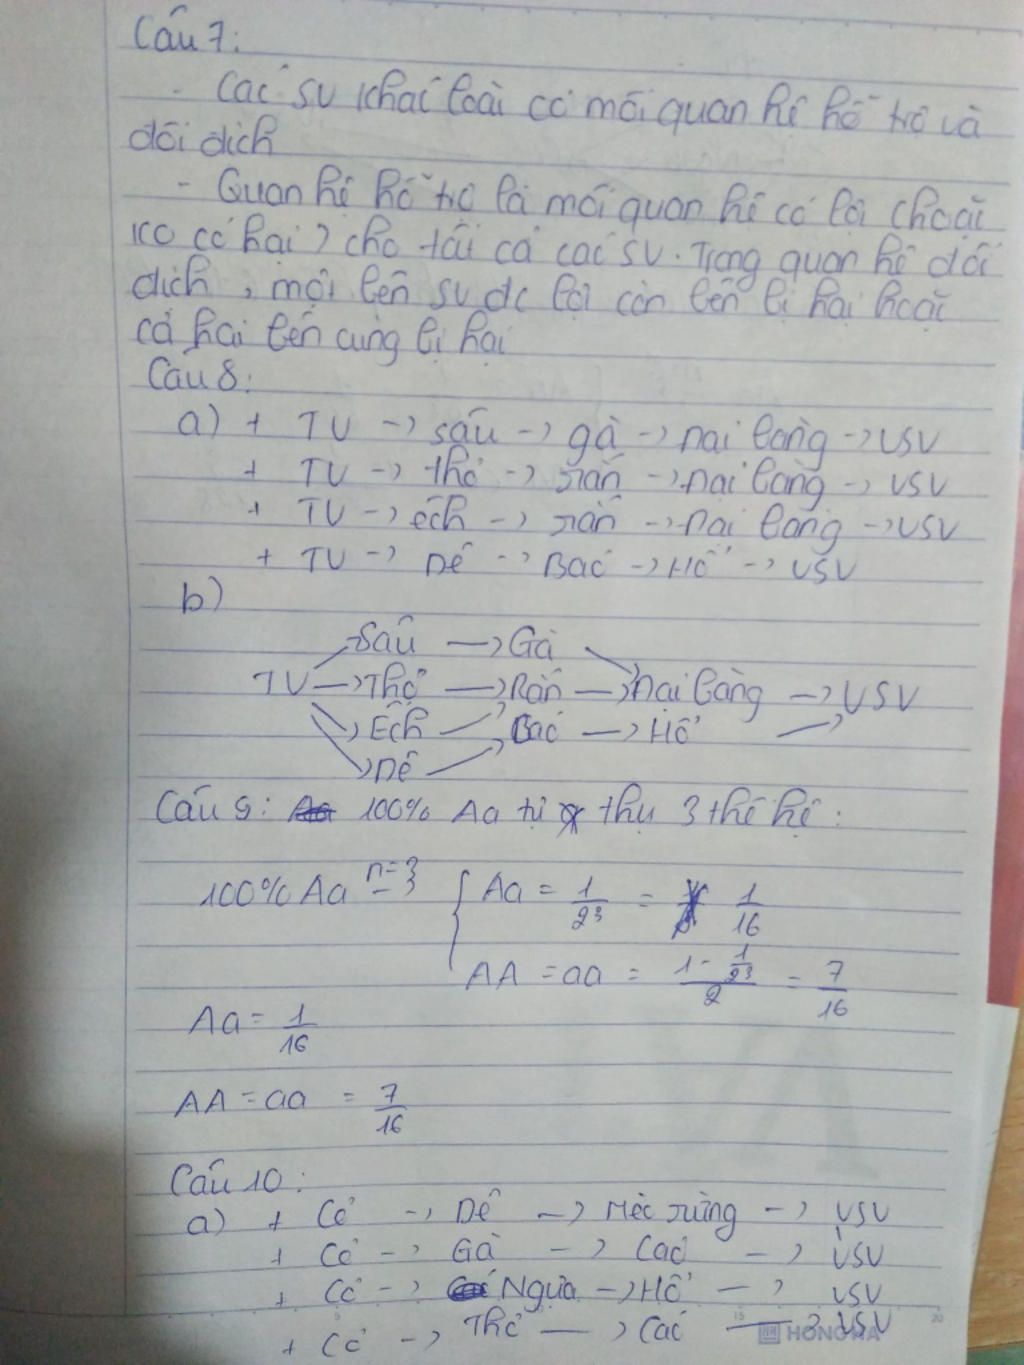 Câu 7:
- Các SV khác loài có mối quan hệ hỗ trợ và
đối địch
- Quan hệ hỗ trợ là mối quan hệ có lợi (hoặc
ko có hại) cho tất cả các SV. Trong quan hệ đối
địch, một bên SV đc lợi còn bên bị hại hoặc
cả hai bên cùng bị hại
Câu 8:
a) + TV -> sâu -> gà -> Đại bàng -> VSV
+ TV -> thỏ -> rắn -> Đại bàng -> VSV
+ TV -> ếch -> rắn -> Đại bàng -> VSV
+ TV -> Dê -> Báo -> Hổ -> VSV
b)
Sâu -> Gà
TV -> Thỏ -> Rắn -> Đại bàng -> VSV
Ếch Báo -> Hổ
Dê
Câu 9: 100% Aa tự thụ 3 thế hệ:
100% Aa n=3 { Aa = 1/2^3 = 1/16
AA = aa = (1 - 1/2^3)/2 = 7/16
Aa = 1/16
AA = aa = 7/16
Câu 10:
a) + Cỏ -> Dê -> Mèo rừng -> VSV
+ Cỏ -> Gà -> Cáo -> VSV
+ Cỏ -> Ngựa -> Hổ -> VSV
+ Cỏ -> Thỏ -> Cáo -> VSV
15 HONG HA 20